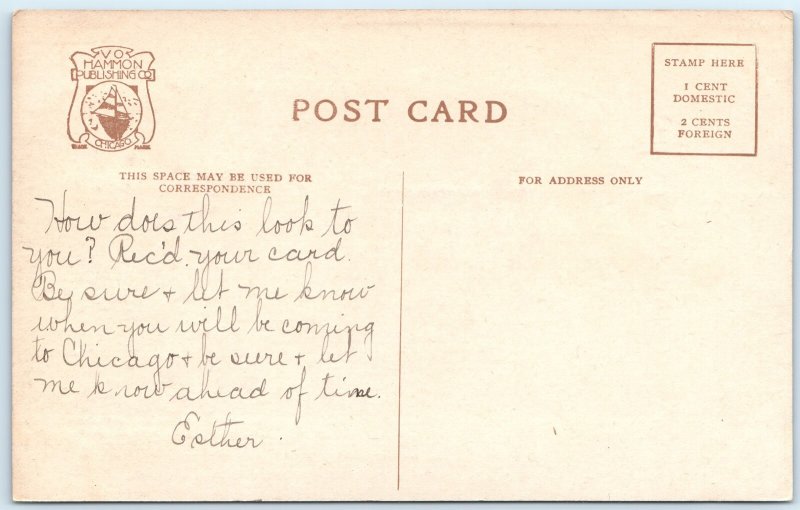 V O
HAMMON
PUBLISHING CO
CHICAGO
TRADE MARK
POST CARD
STAMP HERE
1 CENT
DOMESTIC
2 CENTS
FOREIGN
THIS SPACE MAY BE USED FOR
CORRESPONDENCE
FOR ADDRESS ONLY
How does this look to
you? Rec'd. your card.
Be sure + let me know
when you will be coming
to Chicago + be sure + let
me know ahead of time.
Esther.